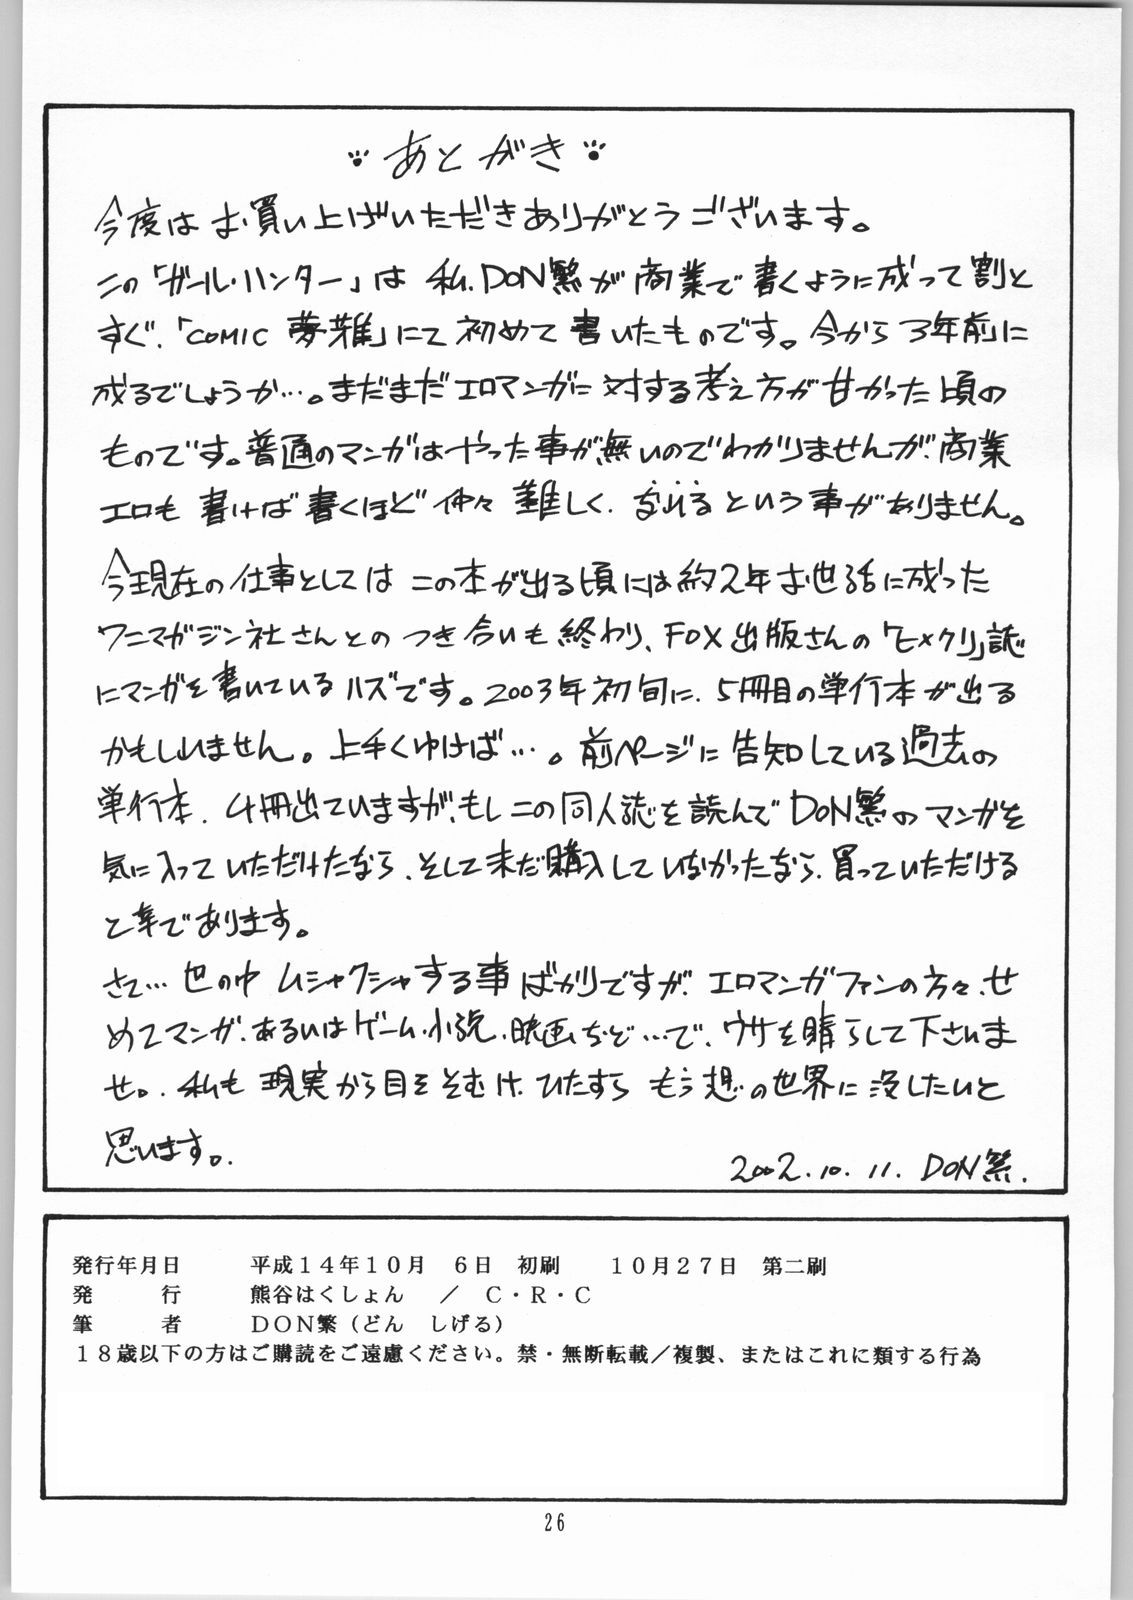 あとがき
今度はお買い上げいただきありがとうございます。
この「ガール・ハンター」は私、DON繁が商業で書くように成って割と
すぐ、「COMIC 夢雅」にて初めて書いたものです。今から3年前に
成るでしょうか…。まだまだエロマンガに対する考え方が甘かった頃の
ものです。普通のマンガはやった事が無いのでわかりませんが、商業
エロも書けば書くほど仲々難しく、なれるという事がありません。
今現在の仕事としてはこの本が出る頃には約2年お世話に成った
ワニマガジン社さんとのつき合いも終わり、FOX出版さんの「ヒメクリ」誌
にマンガを書いているハズです。2003年初旬に、5冊目の単行本が出る
かもしれません。上手くゆけば…。前ページに告知している過去の
単行本、4冊出ていますが、もしこの同人誌を読んでDON繁のマンガを
気に入っていただけたなら、そして未だ購入していなかったなら、買っていただける
と幸であります。
さて…世の中ムシャクシャする事ばかりですが、エロマンガファンの方々、せ
めてマンガ、あるいはゲーム、小説、映画など…で、ウサを晴らして下さいま
せ。私も現実から目をそむけ、ひたすらもう想の世界に没したいと
思います。
2002.10.11. DON繁.
発行年月日　平成14年10月 6日 初刷　10月27日 第二刷
発　行　熊谷はくしょん ／ C・R・C
筆　者　DON繁（どん しげる）
18歳以下の方はご購読をご遠慮ください。禁・無断転載／複製、またはこれに類する行為
26